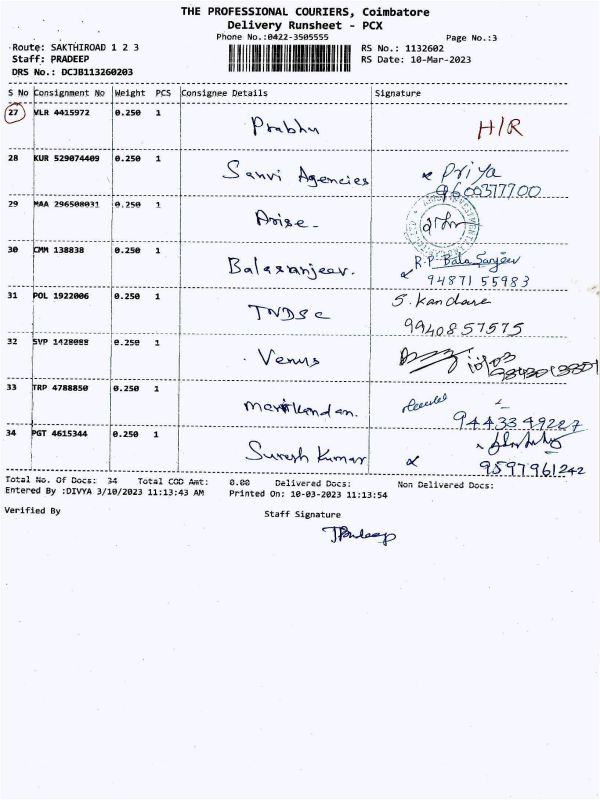 THE PROFESSIONAL COURIERS, Coimbatore
Delivery Runsheet - PCX
Phone No.:0422-3505555
Page No.:3
Route: SAKTHIROAD 1 2 3
RS No.: 1132602
Staff: PRADEEP
RS Date: 10-Mar-2023
DRS No.: DCJB113260203
S No Consignment No Weight PCS Consignee Details Signature
27 VLR 4415972 0.250 1 Prabhu H/R
28 KUR 529074409 0.250 1 Sanvi Agencies Priya
9600377700
29 MAA 296508031 0.250 1 Arise-
30 CMM 138838 0.250 1 Balasranjeev. R.P. Bala Sanjeev
94871 55983
31 POL 1922006 0.250 1 TNDSC S. Kandhare
9940857575
32 SVP 1428088 0.250 1 Venus 10/03
33 TRP 4788850 0.250 1 manikandan.
9443349227
34 PGT 4615344 0.250 1 Suresh Kumar
9597961242
Total No. Of Docs: 34 Total COD Amt: 0.00 Delivered Docs: Non Delivered Docs:
Entered By :DIVYA 3/10/2023 11:13:43 AM Printed On: 10-03-2023 11:13:54
Verified By
Staff Signature
JPradeep